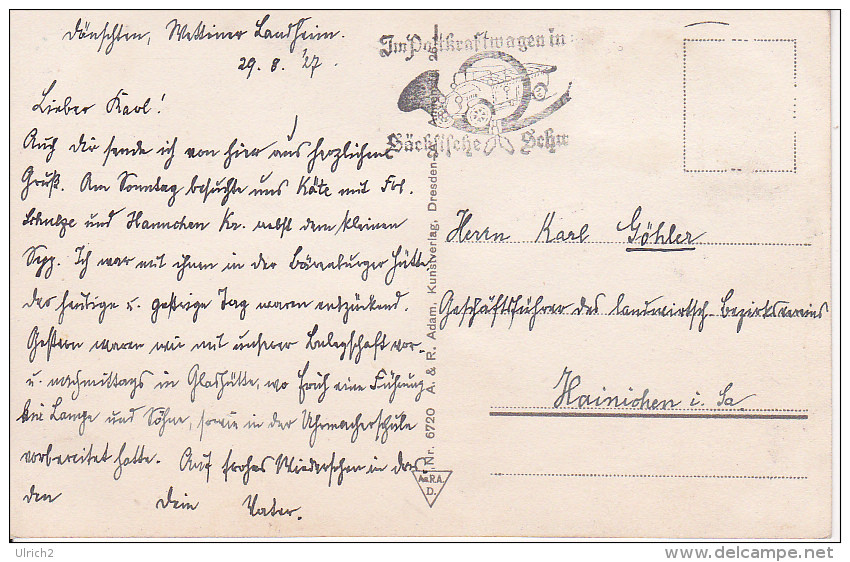 Dönschten, Wettiner Landheim.
29. 8. '27.
Lieber Karl!
Auch dir sende ich von hier aus herzlichen
Gruß. Am Sonntag besuchte uns Käte mit Frl.
Schulze und Hannchen Kr. nebst dem kleinen
Sepp. Ich war mit ihnen in der Bärenburger Hütte
der heutige u. gestrige Tag waren entzückend.
Gestern waren wir mit unserer Belegschaft vor-
u. nachmittags in Glashütte, wo Erich eine Führung
bei Lange und Söhne, sowie in der Uhrmacherschule
vorbereitet hatte. Auf frohes Wiedersehen in Dres-
den Dein Vater.
Im Postkraftwagen in
Sächsische Schw
Nr. 6720 A. & R. Adam, Kunstverlag, Dresden
A.&R.A.
D.
Herrn Karl Göhler
Geschäftsführer des landwirtsch. Bezirksvereins
Hainichen i. Sa.
Ulrich2
www.delcampe.net